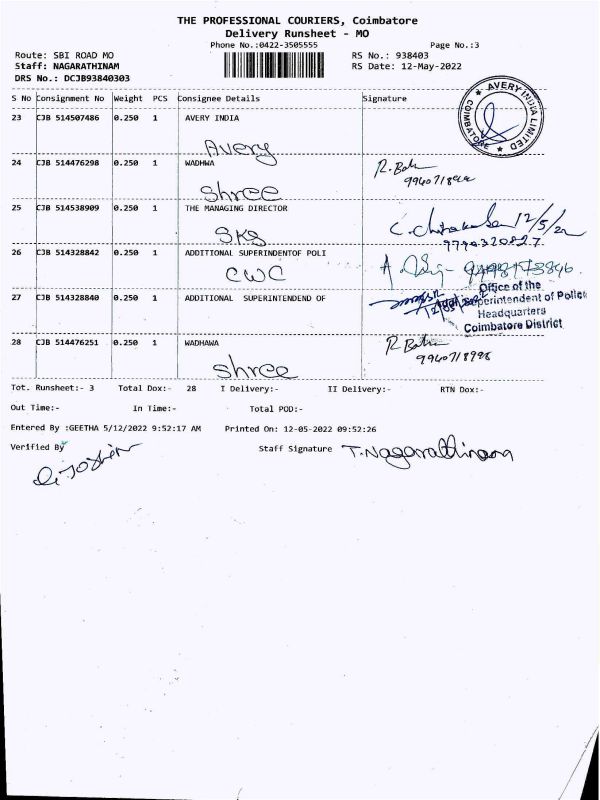 THE PROFESSIONAL COURIERS, Coimbatore
Delivery Runsheet - MO
Phone No.:0422-3505555 Page No.:3
Route: SBI ROAD MO RS No.: 938403
Staff: NAGARATHINAM RS Date: 12-May-2022
DRS No.: DCJB93840303
S No Consignment No Weight PCS Consignee Details Signature
AVERY INDIA LIMITED
COIMBATORE
23 CJB 514507486 0.250 1 AVERY INDIA
Avery
24 CJB 514476298 0.250 1 WADHWA R.
Shree
25 CJB 514538909 0.250 1 THE MANAGING DIRECTOR 12/5/22
SKS 9790320827
26 CJB 514328842 0.250 1 ADDITIONAL SUPERINDENTOF POLI
CWC
Office of the
27 CJB 514328840 0.250 1 ADDITIONAL SUPERINTENDEND OF Superintendent of Police
Headquarters
Coimbatore District
28 CJB 514476251 0.250 1 WADHAWA R
Shree 9940718998
Tot. Runsheet:- 3 Total Dox:- 28 I Delivery:- II Delivery:- RTN Dox:-
Out Time:- In Time:- Total POD:-
Entered By :GEETHA 5/12/2022 9:52:17 AM Printed On: 12-05-2022 09:52:26
Verified By Staff Signature T.Nagarathinam